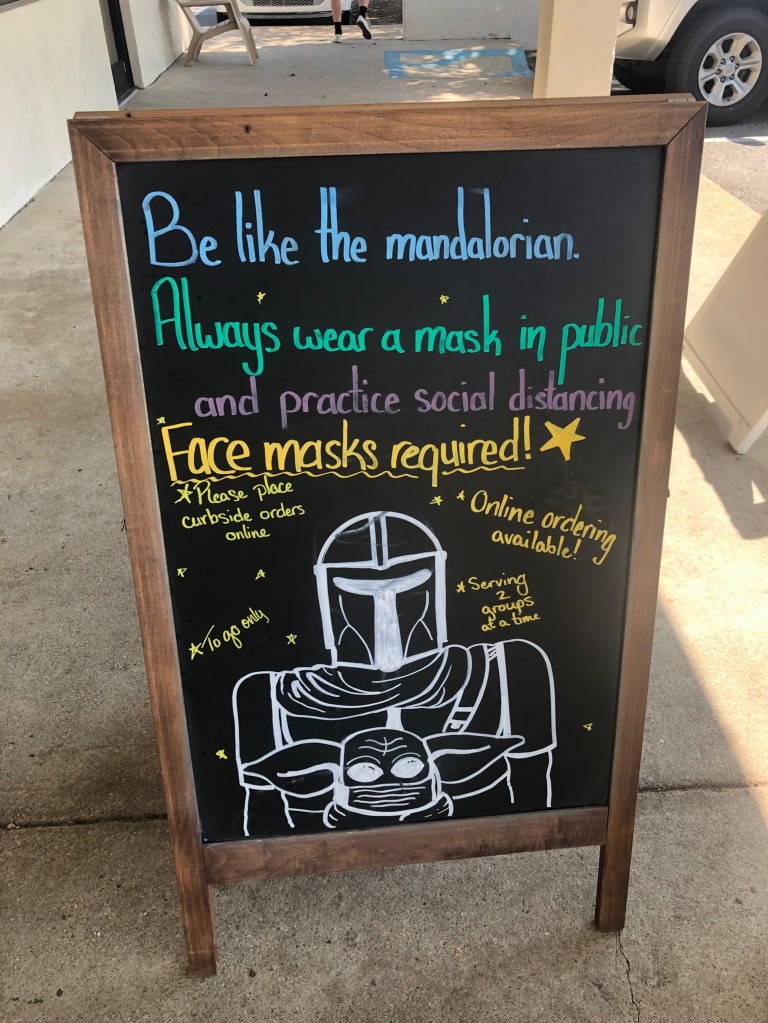 Be like the mandalorian.
Always wear a mask in public
and practice social distancing
Face masks required!
Please place
curbside orders
online
Online ordering
available!
To go only
Serving
2
groups
at a time